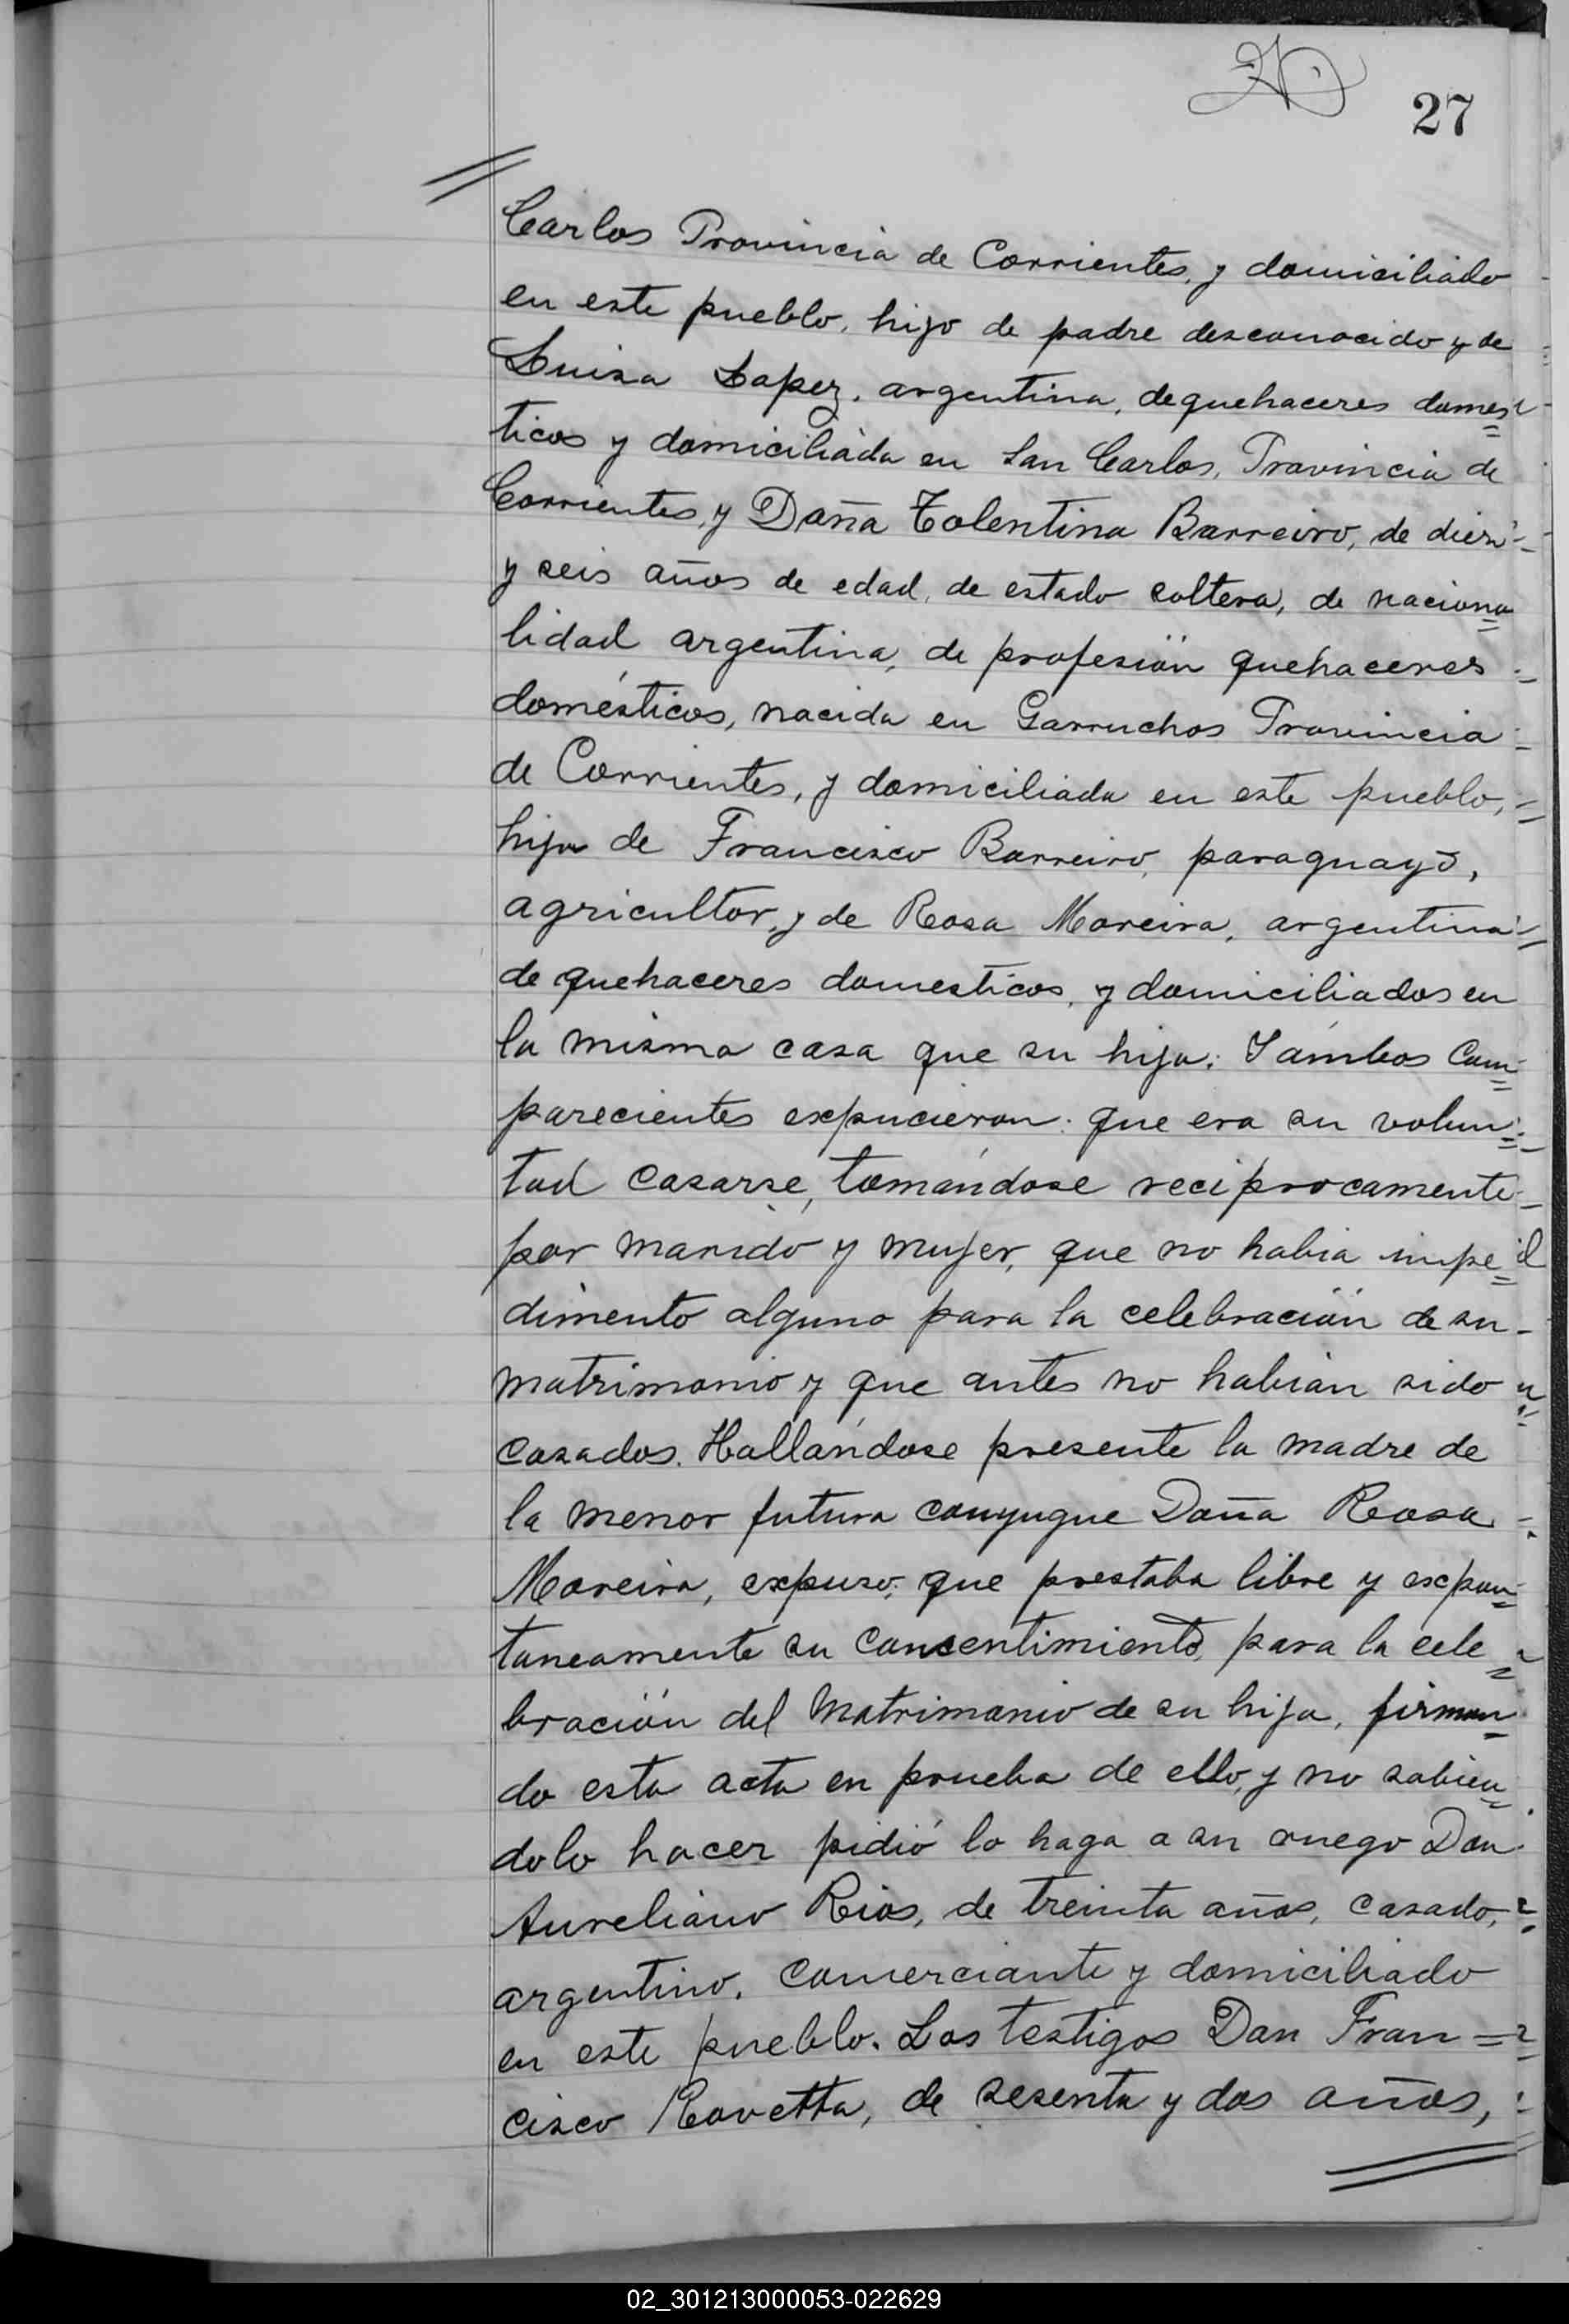 27
Carlos Provincia de Corrientes, y domiciliado
en este pueblo, hijo de padre desconocido y de
Luisa Lopez, argentina, de quehaceres domes
ticos y domiciliada en San Carlos, Provincia de
Corrientes, y Doña Tolentina Barreiro, de diez
y seis años de edad, de estado soltera, de naciona
lidad argentina, de profesión quehaceres
domésticos, nacida en Garruchos Provincia
de Corrientes, y domiciliada en este pueblo,
hija de Francisco Barreiro, paraguayo,
agricultor, y de Rosa Moreira, argentina
de quehaceres domesticos, y domiciliados en
la misma casa que su hija: Y ambos Com
parecientes expucieron: que era su volun
tad casarse, tomándose reciprocamente
por marido y mujer, que no habia impe
dimento alguno para la celebración de su
matrimonio y que antes no habian sido
casados. Hallándose presente la madre de
la menor futura conyugue Doña Rosa
Moreira, expuso: que prestaba libre y expon
taneamente su consentimiento, para la cele
bración del matrimonio de su hija, firman
do esta acta en prueba de ello, y no sabien
dolo hacer pidió lo haga a su ruego Don
Aureliano Rios, de treinta años, casado,
argentino, comerciante y domiciliado
en este pueblo. Los testigos Don Fran =
cisco Rovetta, de sesenta y dos años,
02_301213000053-022629